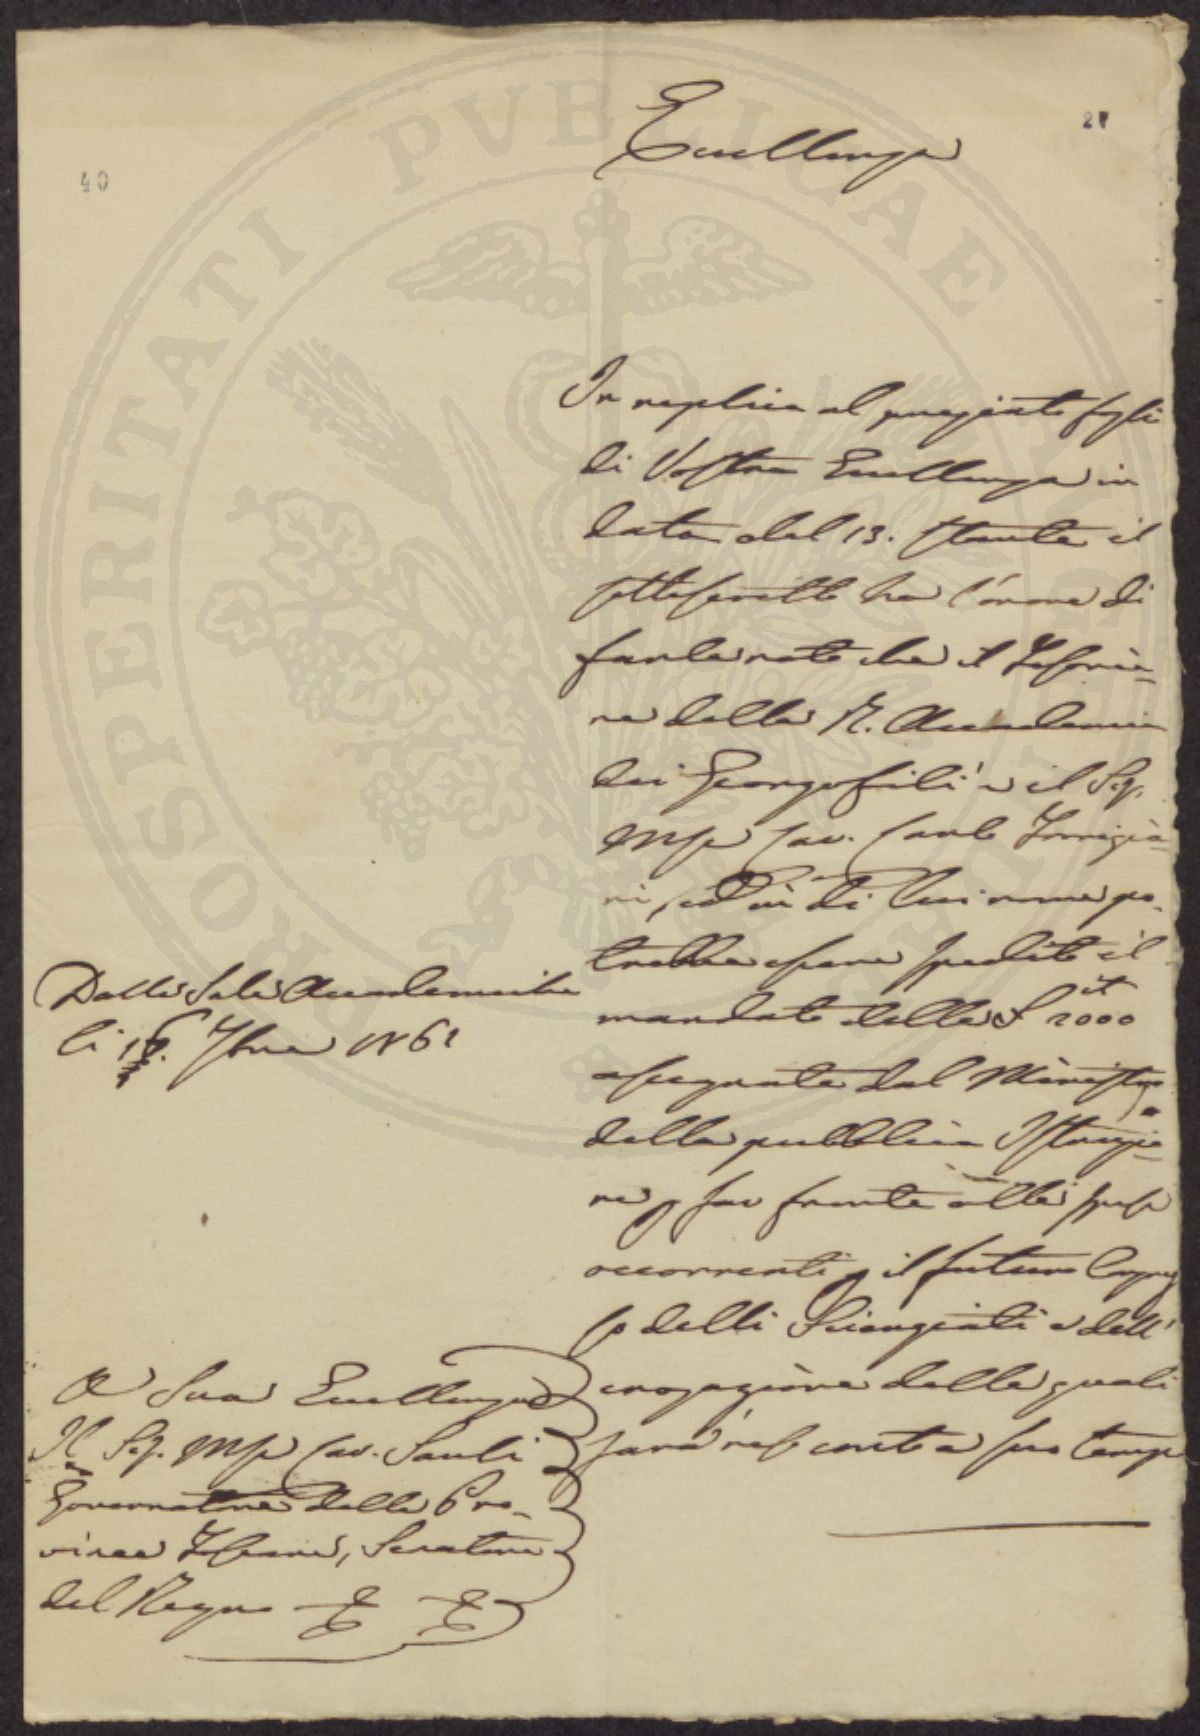 40
27
Eccellenza
In replica al pregiato foglio
di Vostra Eccellenza in
data del 13. stante il
sottoscritto ha l'onore di
farle noto che il Tesorie-
re della R. Accademia
dei Georgofili è il Sig.
Mse Cav. Carlo Torrigia-
ni, ed in di lui nome po-
trebbe essere spedito il
mandato delle £ it 2000
assegnate dal Ministro
della pubblica Istruzio-
ne p far fronte alle spese
occorrenti p il futuro Congres
so delli Scienziati e dell'
erogazione delle quali
sarà reso conto a suo tempo
Dalle Sale Accademiche
li 16. 7bre 1861
A Sua Eccellenza
Il Sig. Mse Cav. Sauli
Governatore delle Pro-
vince Toscane, Senatore
del Regno
PROSPERITATI PVBLICAE